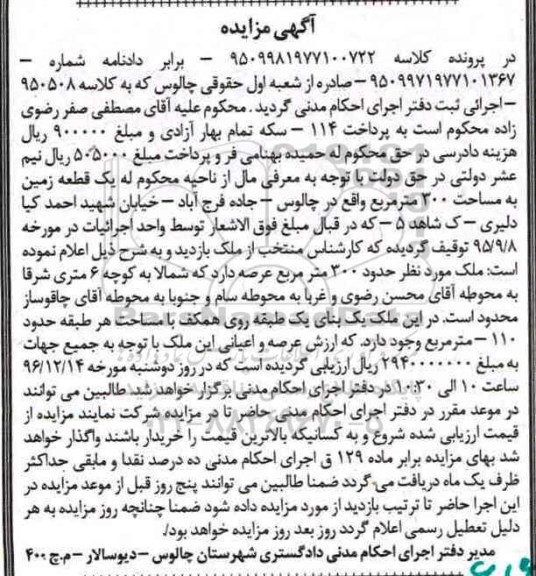 آگهی مزایده
در پرونده کلاسه ۹۵۰۹۹۸۱۹۷۷۱۰۰۷۲۲ – برابر دادنامه شماره –
۹۵۰۹۹۷۱۹۷۷۱۰۱۳۶۷ – صادره از شعبه اول حقوقی چالوس که به کلاسه ۹۵۰۵۰۸
– اجرائی ثبت دفتر اجرای احکام مدنی گردید . محکوم علیه آقای مصطفی صفر رضوی
زاده محکوم است به پرداخت ۱۱۴ – سکه تمام بهار آزادی و مبلغ ۹۰۰۰۰۰ ریال
هزینه دادرسی در حق محکوم له حمیده بهنامی فر و پرداخت مبلغ ۵۰۵۰۰۰ ریال نیم
عشر دولتی در حق دولت با توجه به معرفی مال از ناحیه محکوم له یک قطعه زمین
به مساحت ۳۰۰ مترمربع واقع در چالوس – جاده فرج آباد – خیابان شهید احمد کیا
دلیری – ک شاهد ۵ – که در قبال مبلغ فوق الاشعار توسط واحد اجرائیات در مورخه
۹۵/۹/۸ توقیف گردیده که کارشناس منتخب از ملک بازدید و به شرح ذیل اعلام نموده
است: ملک مورد نظر حدود ۳۰۰ متر مربع عرصه دارد که شمالا به کوچه ۶ متری شرقا
به محوطه آقای محسن رضوی و غربا به محوطه سام و جنوبا به محوطه آقای چاقوساز
محدود است. در این ملک یک بنای یک طبقه روی همکف با مساحت هر طبقه حدود
۱۱۰ – مترمربع وجود دارد. که ارزش عرصه و اعیانی این ملک با توجه به جمیع جهات
به مبلغ ۲۹۴۰۰۰۰۰۰۰ ریال ارزیابی گردیده است که در روز دوشنبه مورخه ۹۶/۱۲/۱۴
ساعت ۱۰ الی ۱۰:۳۰ در دفتر اجرای احکام مدنی برگزار خواهد شد. طالبین می توانند
در موعد مقرر در دفتر اجرای احکام مدنی حاضر تا در مزایده شرکت نمایند مزایده از
قیمت ارزیابی شده شروع و به کسانیکه بالاترین قیمت را خریدار باشند واگذار خواهد
شد بهای مزایده برابر ماده ۱۲۹ ق اجرای احکام مدنی ده درصد نقدا و مابقی حداکثر
ظرف یک ماه دریافت می گردد ضمنا طالبین می توانند پنج روز قبل از موعد مزایده در
این اجرا حاضر تا ترتیب بازدید از مورد مزایده داده شود ضمنا چنانچه روز مزایده به هر
دلیل تعطیل رسمی اعلام گردد روز بعد روز مزایده خواهد بود/.
مدیر دفتر اجرای احکام مدنی دادگستری شهرستان چالوس – دیوسالار – م.چ ۴۰۰